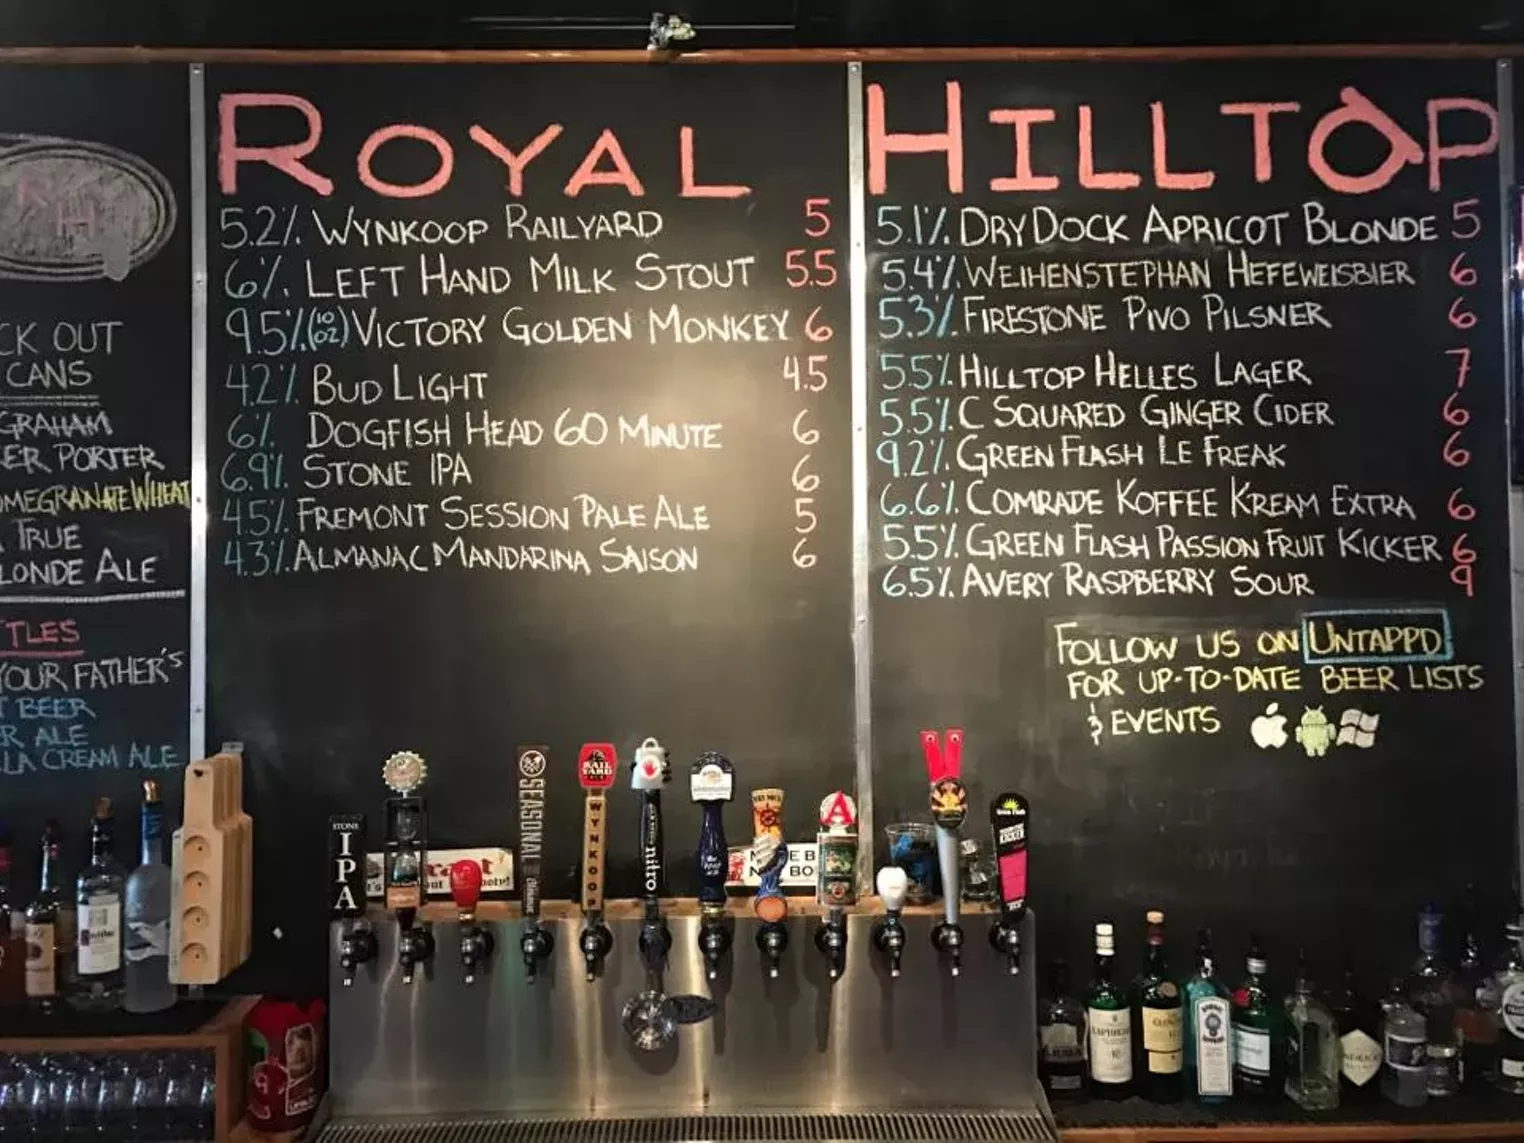 R H
CK OUT
CANS
GRAHAM
ER PORTER
OMEGRANATE WHEAT
TRUE
LONDE ALE
TLES
YOUR FATHER'S
T BEER
R ALE
LA CREAM ALE
ROYAL
5.2% WYNKOOP RAILYARD 5
6% LEFT HAND MILK STOUT 5.5
9.5% (10 OZ) VICTORY GOLDEN MONKEY 6
4.2% BUD LIGHT 4.5
6% DOGFISH HEAD 60 MINUTE 6
6.9% STONE IPA 6
4.5% FREMONT SESSION PALE ALE 5
4.3% ALMANAC MANDARINA SAISON 6
HILLTOP
5.1% DRY DOCK APRICOT BLONDE 5
5.4% WEIHENSTEPHAN HEFEWEISBIER 6
5.3% FIRESTONE PIVO PILSNER 6
5.5% HILLTOP HELLES LAGER 7
5.5% C SQUARED GINGER CIDER 6
9.2% GREEN FLASH LE FREAK 6
6.6% COMRADE KOFFEE KREAM EXTRA 6
5.5% GREEN FLASH PASSION FRUIT KICKER 6
6.5% AVERY RASPBERRY SOUR 9
FOLLOW US ON UNTAPPD
FOR UP-TO-DATE BEER LISTS
& EVENTS
STONE
IPA
SEASONAL
RAIL YARD
WYNKOOP
nitro
A
KICKER